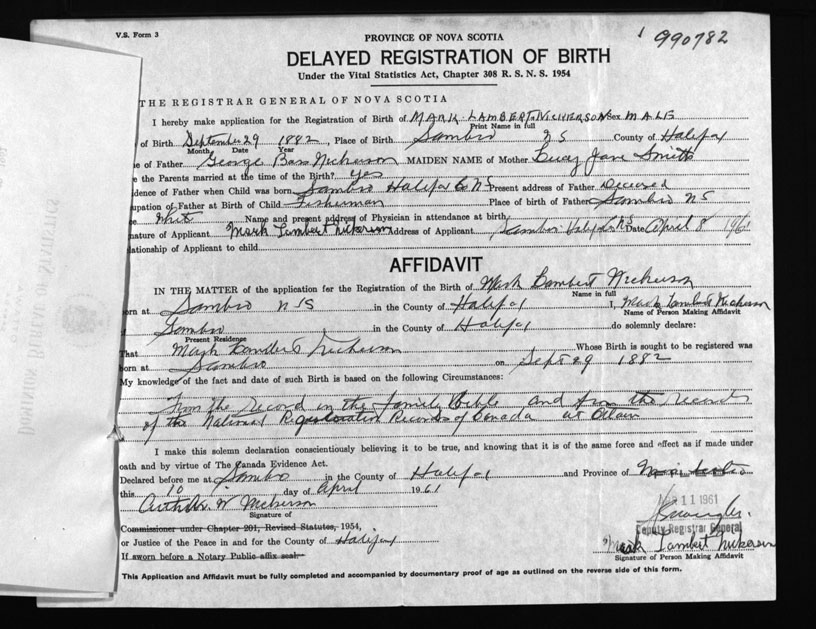 V.S. Form 3
PROVINCE OF NOVA SCOTIA
990782
DELAYED REGISTRATION OF BIRTH
Under the Vital Statistics Act, Chapter 308 R. S. N. S. 1954
THE REGISTRAR GENERAL OF NOVA SCOTIA
I hereby make application for the Registration of Birth of MARK LAMBERT NICKERSON Sex MALE
Print Name in full
of Birth September 29 1882, Place of Birth Sambro NS County of Halifax
Month Date Year
of Father George Bass Nickerson MAIDEN NAME of Mother Jane Smith
the Parents married at the time of the Birth? yes
dence of Father when Child was born Sambro Halifax Co NS Present address of Father Deceased
upation of Father at Birth of Child Fisherman Place of birth of Father Sambro NS
Whit Name and present address of Physician in attendance at birth
nature of Applicant Mark Lambert Nickerson Address of Applicant Sambro Halifax NS Date April 8 1961
lationship of Applicant to child
AFFIDAVIT
IN THE MATTER of the application for the Registration of the Birth of Mark Lambert Nickerson
Name in full
orn at Sambro NS in the County of Halifax I, Mark Lambert Nickerson
Name of Person Making Affidavit
Sambro in the County of Halifax do solemnly declare:
Present Residence
That Mark Lambert Nickerson Whose Birth is sought to be registered was
born at Sambro on Sept 29 1882
My knowledge of the fact and date of such Birth is based on the following Circumstances:
From the record in the family Bible and from the records
of the National Registration Records of Canada at
I make this solemn declaration conscientiously believing it to be true, and knowing that it is of the same force and effect as if made under
oath and by virtue of The Canada Evidence Act.
Declared before me at Sambro in the County of Halifax and Province of
this 10 day of April 1961
APR 11 1961
W Nickerson
Signature of
Deputy Registrar General
Commissioner under Chapter 201, Revised Statutes, 1954,
or Justice of the Peace in and for the County of Halifax
Mark Lambert Nickerson
If sworn before a Notary Public affix seal
Signature of Person Making Affidavit
This Application and Affidavit must be fully completed and accompanied by documentary proof of age as outlined on the reverse side of this form.
DOMINION BUREAU OF STATISTICS